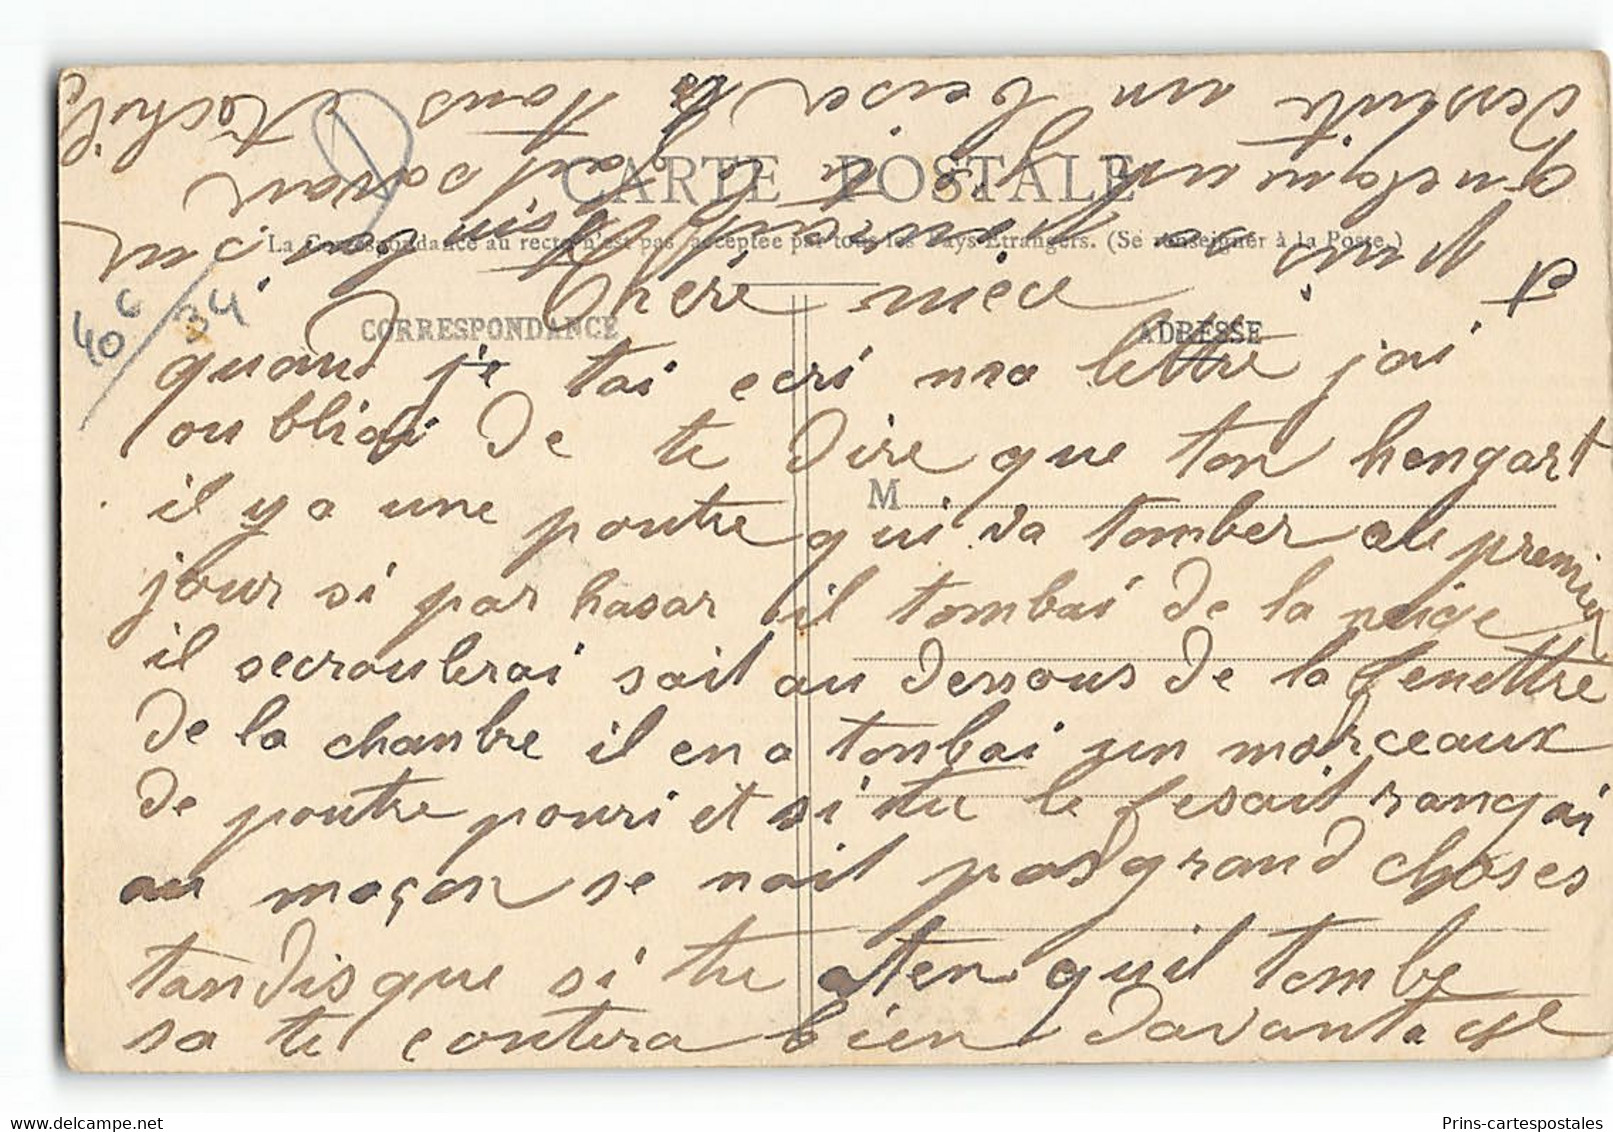 CARTE POSTALE
La Correspondance au recto n'est pas acceptée par tous les Pays Étrangers. (Se renseigner à la Poste.)
CORRESPONDANCE
ADRESSE
M
40c/34
Chère nièce
quand je tai ecri ma lettre jai
oubliai de te dire que ton hengart
il y a une poutre qui va tomber au premier
jour si par hasar il tombai de la neige
il secroulerai sait au dessous de la fenettre
de la chambre il en a tonbai un morceaux
de poutre pourri et si tu le fesait rangai
au maçon se nait pas grand choses
tandisque si tu aten quil tombe
sa te contera bien davantage
et